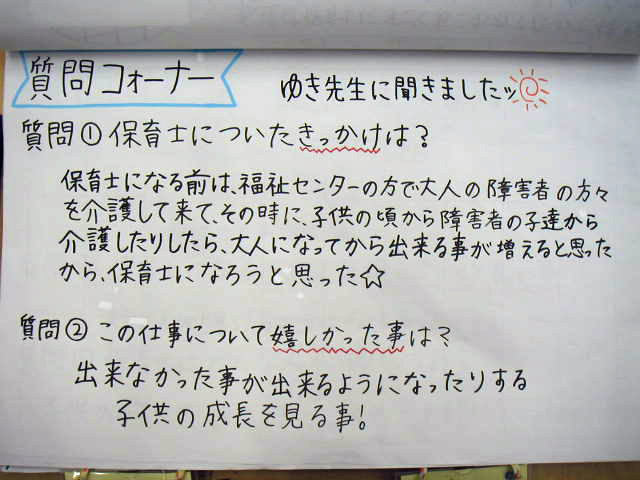 質問コーナー
ゆき先生に聞きましたッ
質問①保育士についたきっかけは?
保育士になる前は、福祉センターの方で大人の障害者の方々
を介護して来て、その時に、子供の頃から障害者の子達から
介護したりしたら、大人になってから出来る事が増えると思った
から、保育士になろうと思った☆
質問②この仕事について嬉しかった事は?
出来なかった事が出来るようになったりする
子供の成長を見る事!